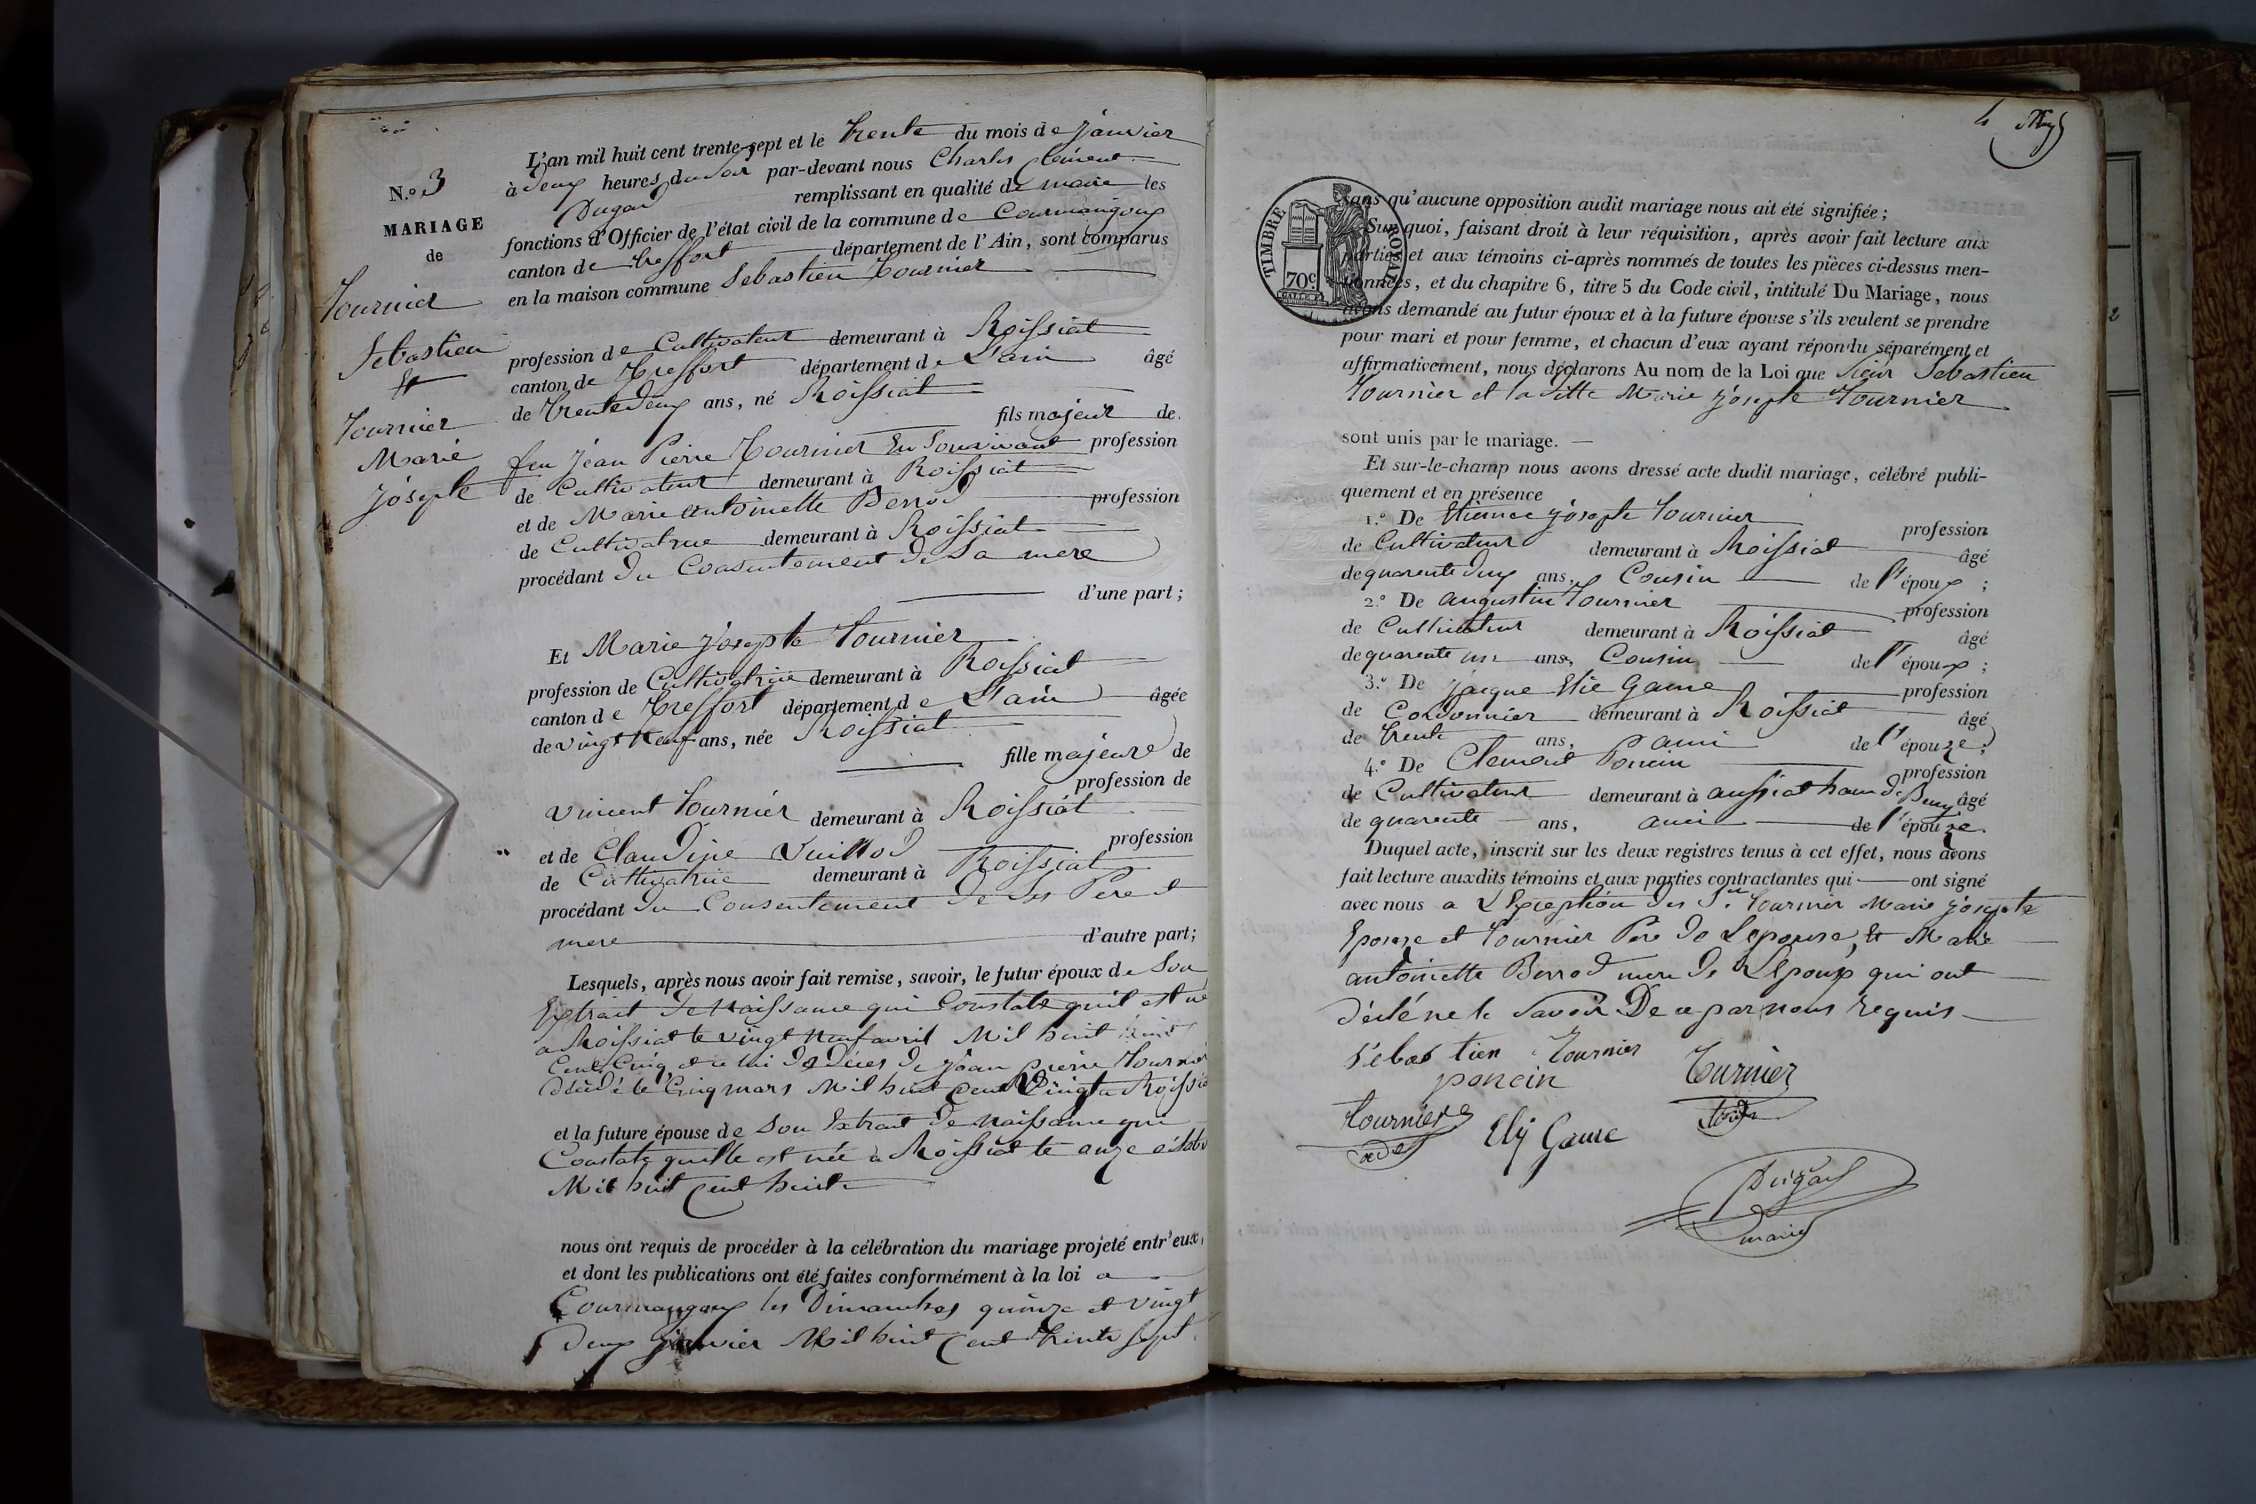 N.º 3
MARIAGE
de
Tournier
Sebastien
et
Tournier
Marie
josephte
L'an mil huit cent trente-sept et le trente du mois de janvier
à deux heures du soir par-devant nous Charles Clément
Dugad remplissant en qualité de maire les
fonctions d'Officier de l'état civil de la commune de Courmangoux
canton de treffort département de l'Ain, sont comparus
en la maison commune Sebastien Tournier
profession de Cultivateur demeurant à Roissiat
canton de Treffort département de L'ain âgé
de trente deux ans, né Roissiat
fils majeur de
feu jean Pierre Tournier En Son vivant profession
de Cultivateur demeurant à Roissiat
et de Marie antoinette Berrod profession
de Cultivatrice demeurant à Roissiat
procédant du Consentement de Sa mere
d'une part;
Et Marie josephte Tournier
profession de Cultivatrice demeurant à Roissiat
canton de Treffort département de L'ain âgée
de vingt neuf ans, née Roissiat
fille majeure de
profession de
vincent Tournier demeurant à Roissiat
et de Claudine Vuillod profession
de Cultivatrice demeurant à Roissiat
procédant du Consentement de Ses Pere et
mere d'autre part;
Lesquels, après nous avoir fait remise, savoir, le futur époux de Son
Extrait de Naissance qui Constate quil est né
a Roissiat le vingt neuf avril Mil huit
Cent Cinq, et celui de Déces de jean Pierre Tournier
décédé le Cinq mars Mil huit Cent Vingt a Roissiat
et la future épouse de Son Extrait de Naissance qui
Constate quelle est née a Roissiat le onze
Mil huit Cent huit
nous ont requis de procéder à la célébration du mariage projeté entr'eux,
et dont les publications ont été faites conformément à la loi a
Courmangoux les Dimanches quinze et vingt
Deux janvier Mil huit Cent trente Sept
4
TIMBRE ROYAL
70c
sans qu'aucune opposition audit mariage nous ait été signifiée;
Sur quoi, faisant droit à leur réquisition, après avoir fait lecture aux
parties et aux témoins ci-après nommés de toutes les pièces ci-dessus men-
tionnées, et du chapitre 6, titre 5 du Code civil, intitulé Du Mariage, nous
avons demandé au futur époux et à la future épouse s'ils veulent se prendre
pour mari et pour femme, et chacun d'eux ayant répondu séparément et
affirmativement, nous déclarons Au nom de la Loi que Sieur Sebastien
Tournier et la ditte Marie josephte Tournier
sont unis par le mariage. —
Et sur-le-champ nous avons dressé acte dudit mariage, célébré publi-
quement et en présence
1.º De Etienne joseph Tournier profession
de Cultivateur demeurant à Roissiat âgé
de quarente deux ans, Cousin de l'époux;
2.º De augustin Tournier profession
de Cultivateur demeurant à Roissiat âgé
de quarente un ans, Cousin de l'époux;
3.º De jacque Elie Game profession
de Cordonnier demeurant à Roissiat âgé
de trente ans, ami de l'épouze;
4.º De Clement Poncin profession
de Cultivateur demeurant à aussiat ham de Beny âgé
de quarente ans, ami de l'épouze.
Duquel acte, inscrit sur les deux registres tenus à cet effet, nous avons
fait lecture auxdits témoins et aux parties contractantes qui ont signé
avec nous a L'Exception des Tournier Marie josephte
Epouze et Tournier Pere de Lepouse, et Marie
antoinette Berrod mere de Lepoux qui ont
déclé ne le Savoir De ce par nous requis
Sebastien Tournier
poncin
Tournier
Tournier
Ely Game
Dugad
maire